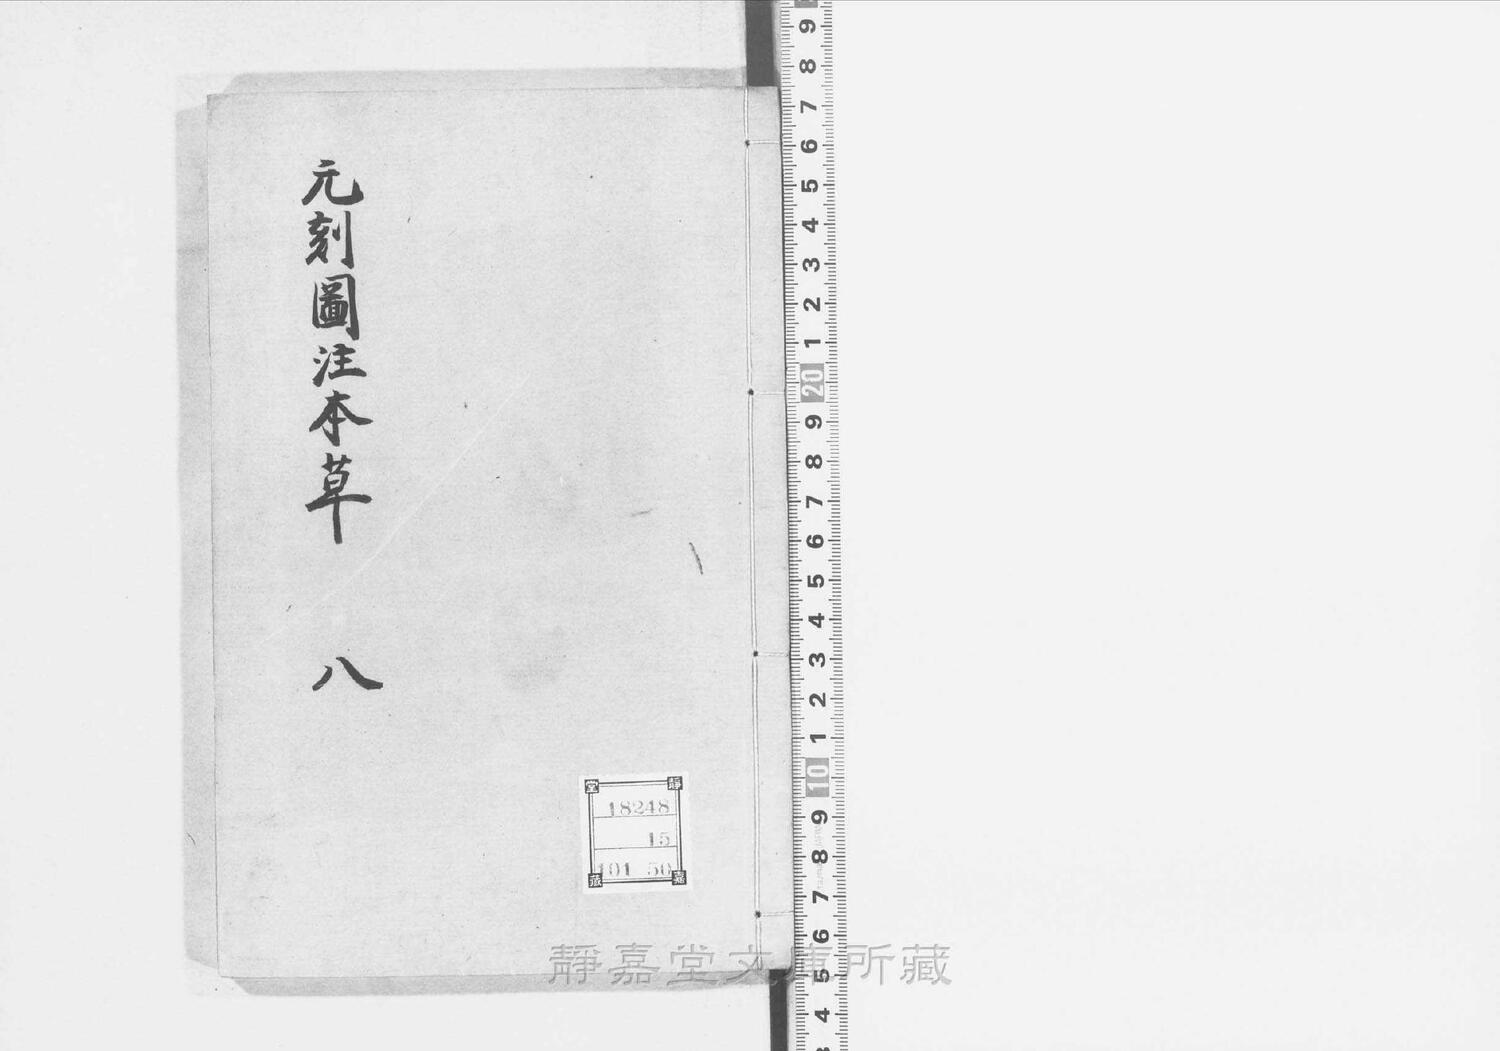 元刻圖注本草 八
靜
嘉
堂
藏
18248
15
101 50
靜嘉堂文庫所藏
9
8
7
6
5
4
3
2
1
20
9
8
7
6
5
4
3
2
1
10
9
8
7
6
5
4